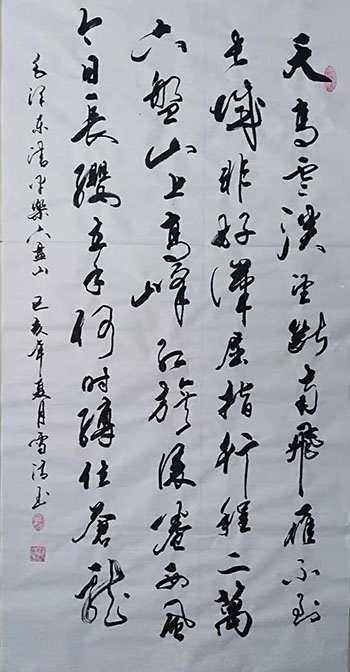 天高云淡望断南飛雁不到
长城非好漢屈指行程二萬
六盤山上高峰红旗漫卷西風
今日長纓在手何时縛住蒼龍
毛泽东清平樂六盘山 己亥年夏月雪清书